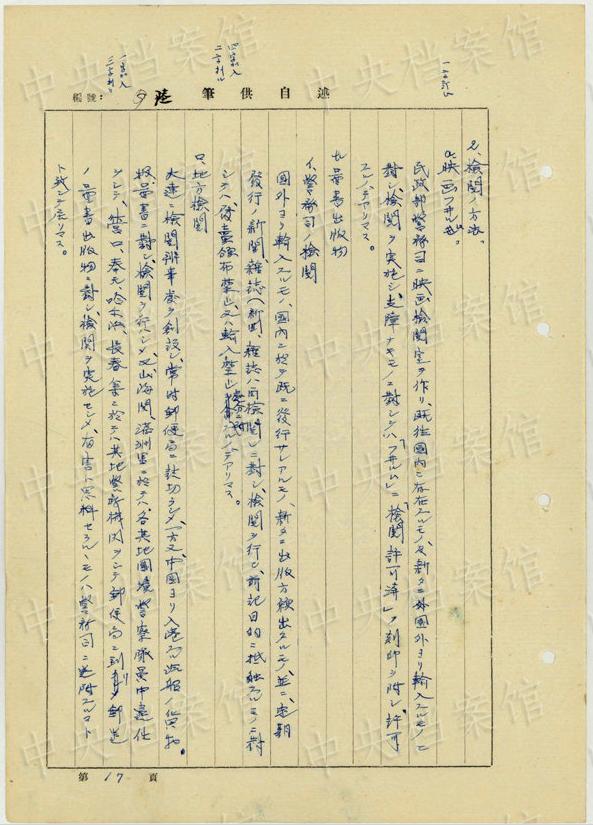 述自供筆
編號：
一字訂正
四字加入
二字削ル
一字加入
三字削ル
2、檢閲ノ方法。
a、映画フイルム。
民政部警務司ニ映画檢閲室ヲ作リ、既往國内ニ存在スルモノ、及新タニ外國ヨリ輸入スルモノニ
對シ檢閲ヲ実施シ支障ナキモノニ對シテハ「フイルム」ニ「檢閲許可濟」ノ刻印ヲ附シ許可
スルノデアリマス。
b、圖書出版物
イ、警務司ノ檢閲
國外ヨリ輸入スルモノ、國内ニ於テ既ニ發行サレアルモノ、新タニ出版方願出タルモノ、並ニ定期
發行ノ新聞、雜誌（新聞、雜誌ハ同檢閲）ニ對シ檢閲ヲ行ヒ、前記目的ニ抵触スルモノニ對
シテハ發賣頒布禁止又ハ輸入禁止 スルノデアリマス。
ロ、地方檢閲
大連ニ檢閲辨事處ヲ創設シ、常時郵便局ニ 方又中國ヨリ入港スル汽船ノ貨物、
圖書ニ對シ檢閲ヲ行ハシメ、又山海関、滿洲里ニ於テハ各其地國境警察隊員中 任
シテ、營口、奉天、哈尓浜、長春等ニ於テハ其地警務機関ヲシテ郵便局ニ到 郵送
ノ圖書出版物ニ對シ檢閲ヲ実施セシメ、有害ト思料セラルヽモノハ警務司ニ送附スルコト
ト致シテ居リマス。
第 17 頁
中央档案馆